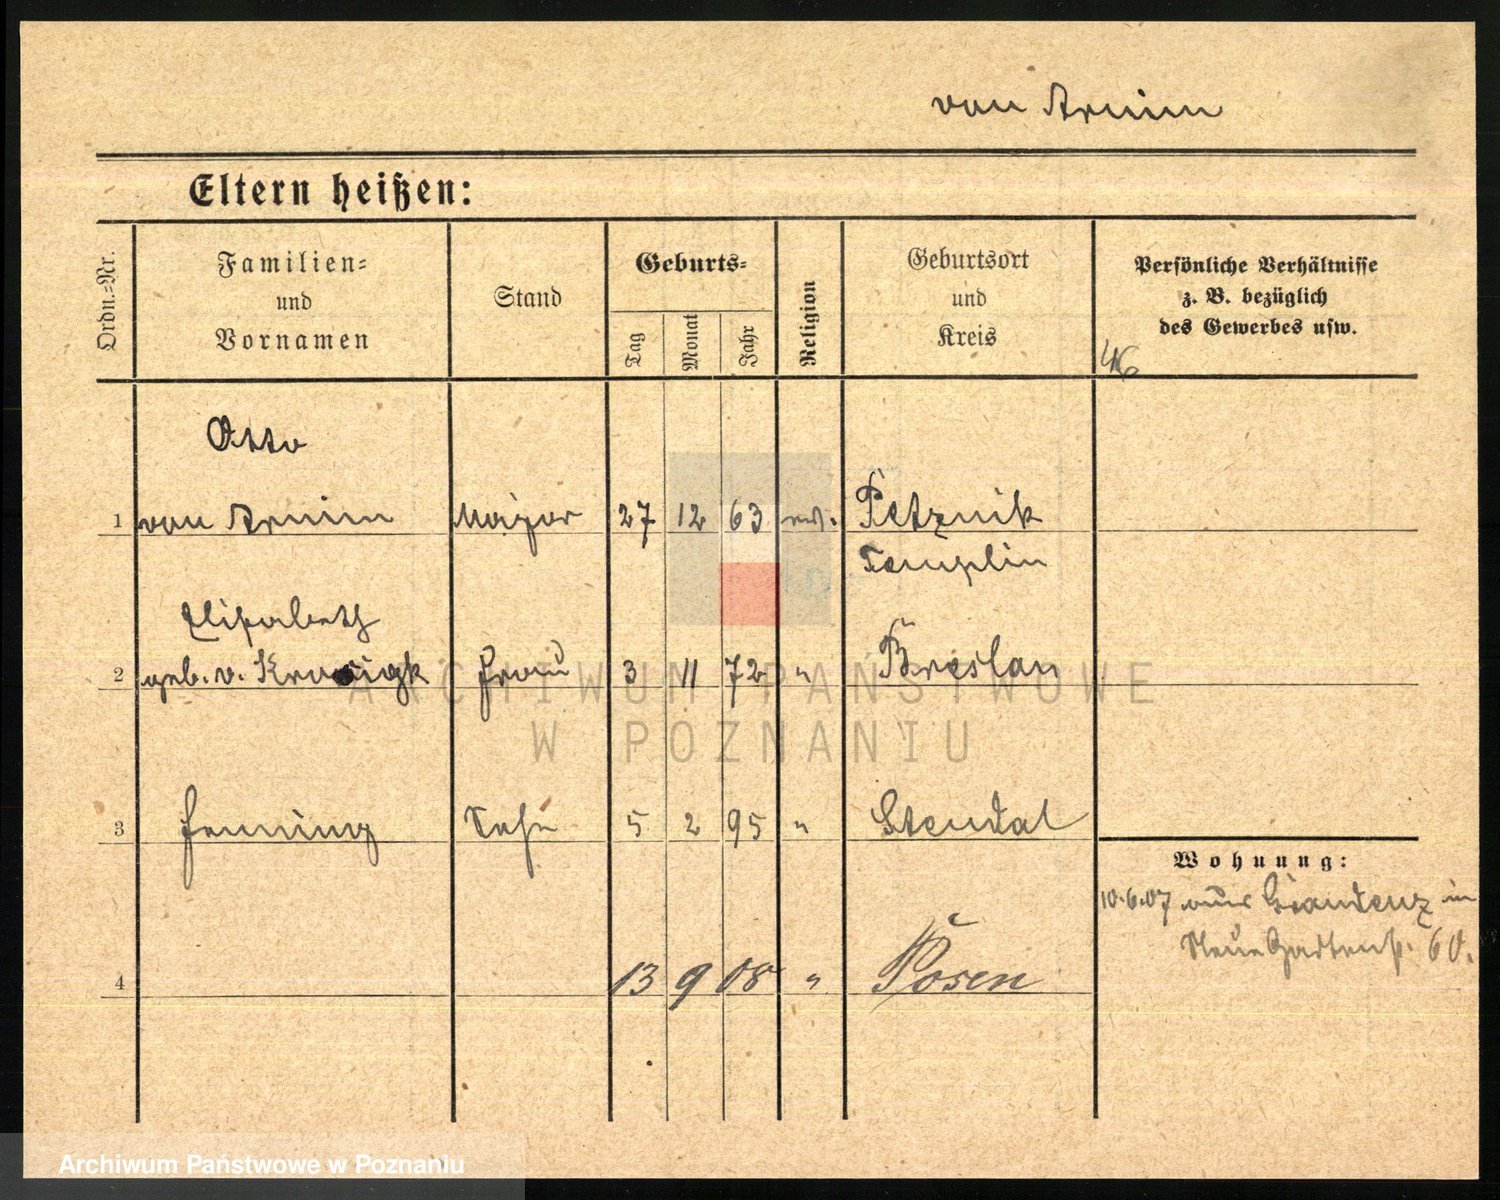 von Arnim
Eltern heißen:
Ordn.=Nr.
Familien=
und
Vornamen
Stand
Geburts=
Tag
Monat
Jahr
Religion
Geburtsort
und
Kreis
Persönliche Verhältnisse
z. B. bezüglich
des Gewerbes usw.
46
Otto
1 von Arnim Major 27 12 63 Petznik
Templin
Elisabeth
2 geb. v. Krosigk Frau 3 11 72 " Breslau
3 Henning Sohn 5 2 95 " Stendal
Wohnung:
10.6.07 aus Graudenz in
Neue Gartenstr. 60.
4 13 9 08 " Posen
ARCHIWUM PAŃSTWOWE
W POZNANIU
Archiwum Państwowe w Poznaniu